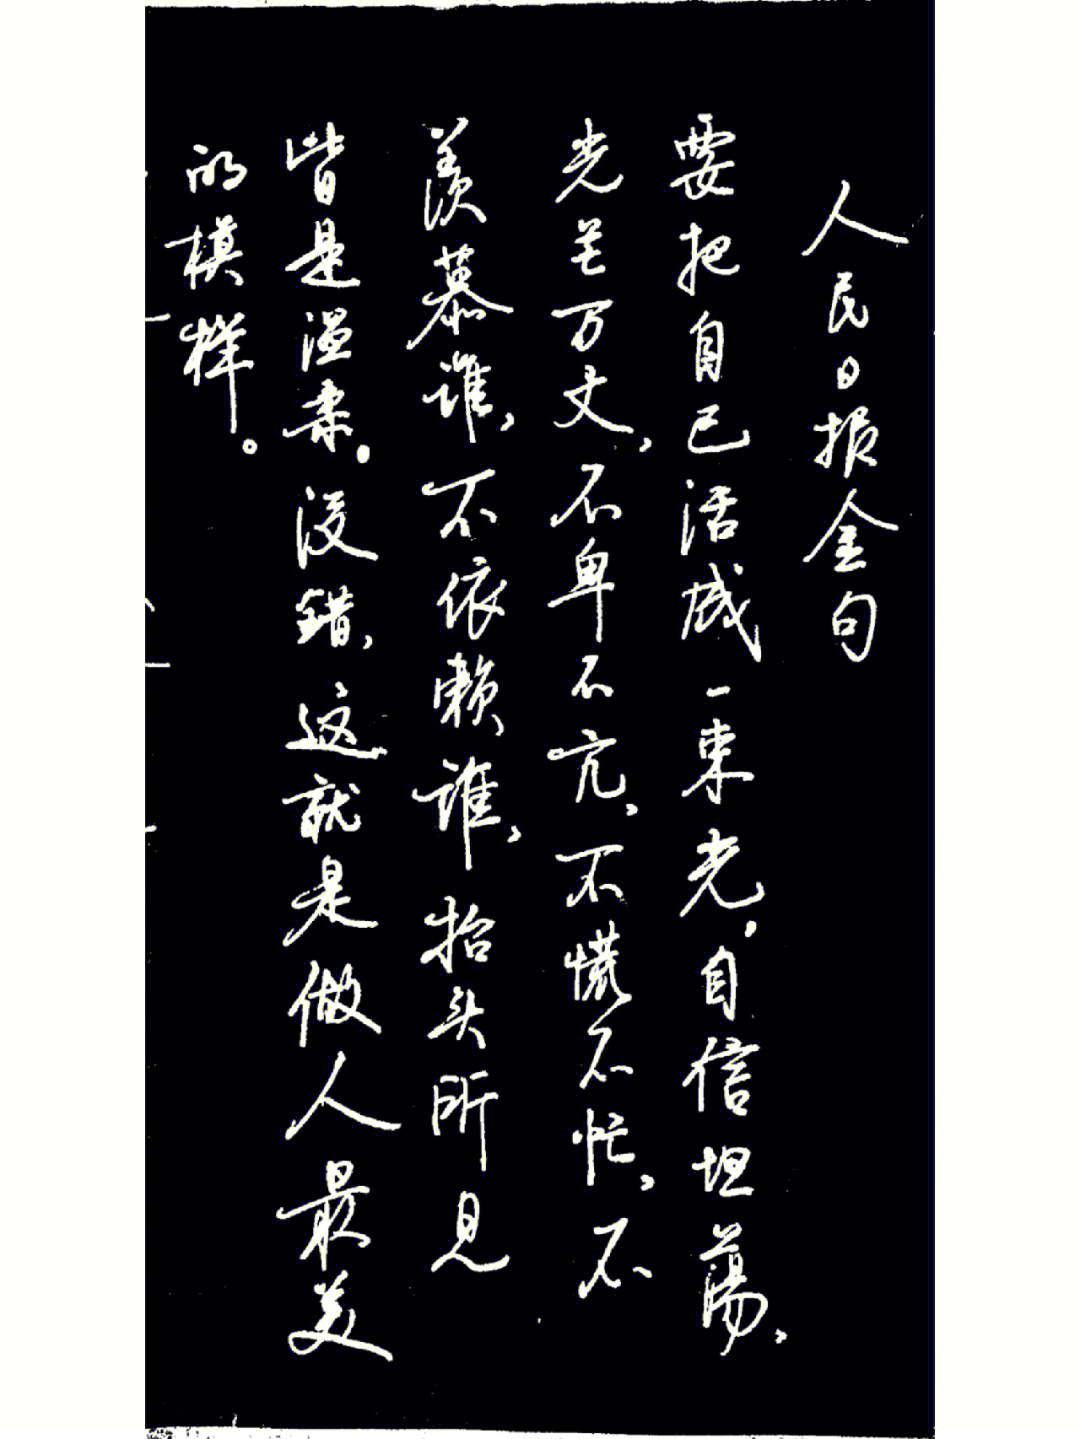 人民日报金句
要把自己活成一束光，自信坦荡，
光芒万丈，不卑不亢，不慌不忙，不
羡慕谁，不依赖谁，抬头所见
皆是温柔。没错，这就是做人最美
的模样。